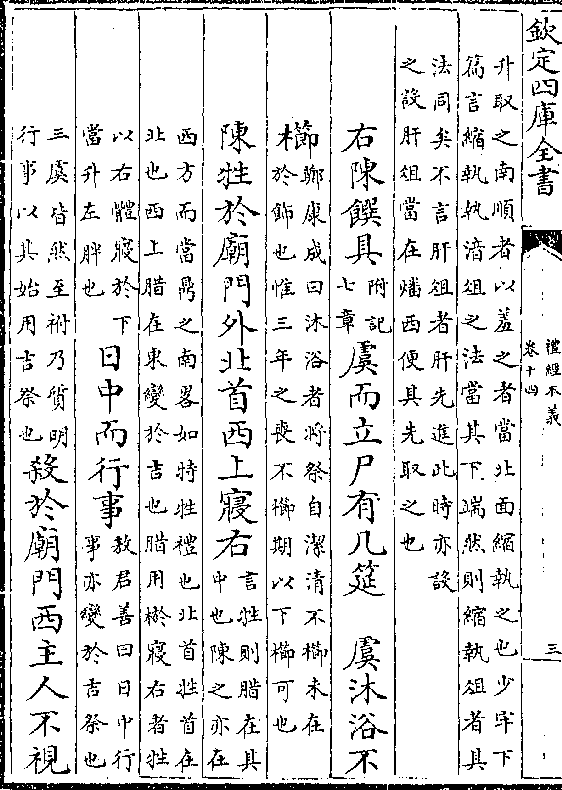 欽定四庫全書
禮經本義
卷十四
三
升取之南順者以羞之者當北面縮執之也少牢下
篇言縮執執湆俎之法當其下端然則縮執俎者其
法同矣不言肝俎者肝先進此時亦設
之設肝俎當在燔西便其先取之也
右陳饌具附記七章 虞而立尸有几筵 虞沐浴不
櫛鄭康成曰沐浴者將祭自潔清不櫛未在
於飾也惟三年之喪不櫛期以下櫛可也
陳牲於廟門外北首西上寢右言牲則腊在其
中也陳之亦在
西方而當鼎之南畧如特牲禮也北首牲首在
北也西上腊在東變於吉也腊用棜寢右者牲
以右體寢於下
當升左胖也 日中而行事敖君善曰日中行
事亦變於吉祭也
三虞皆然至祔乃質明
行事以其始用吉祭也 殺於廟門西主人不視